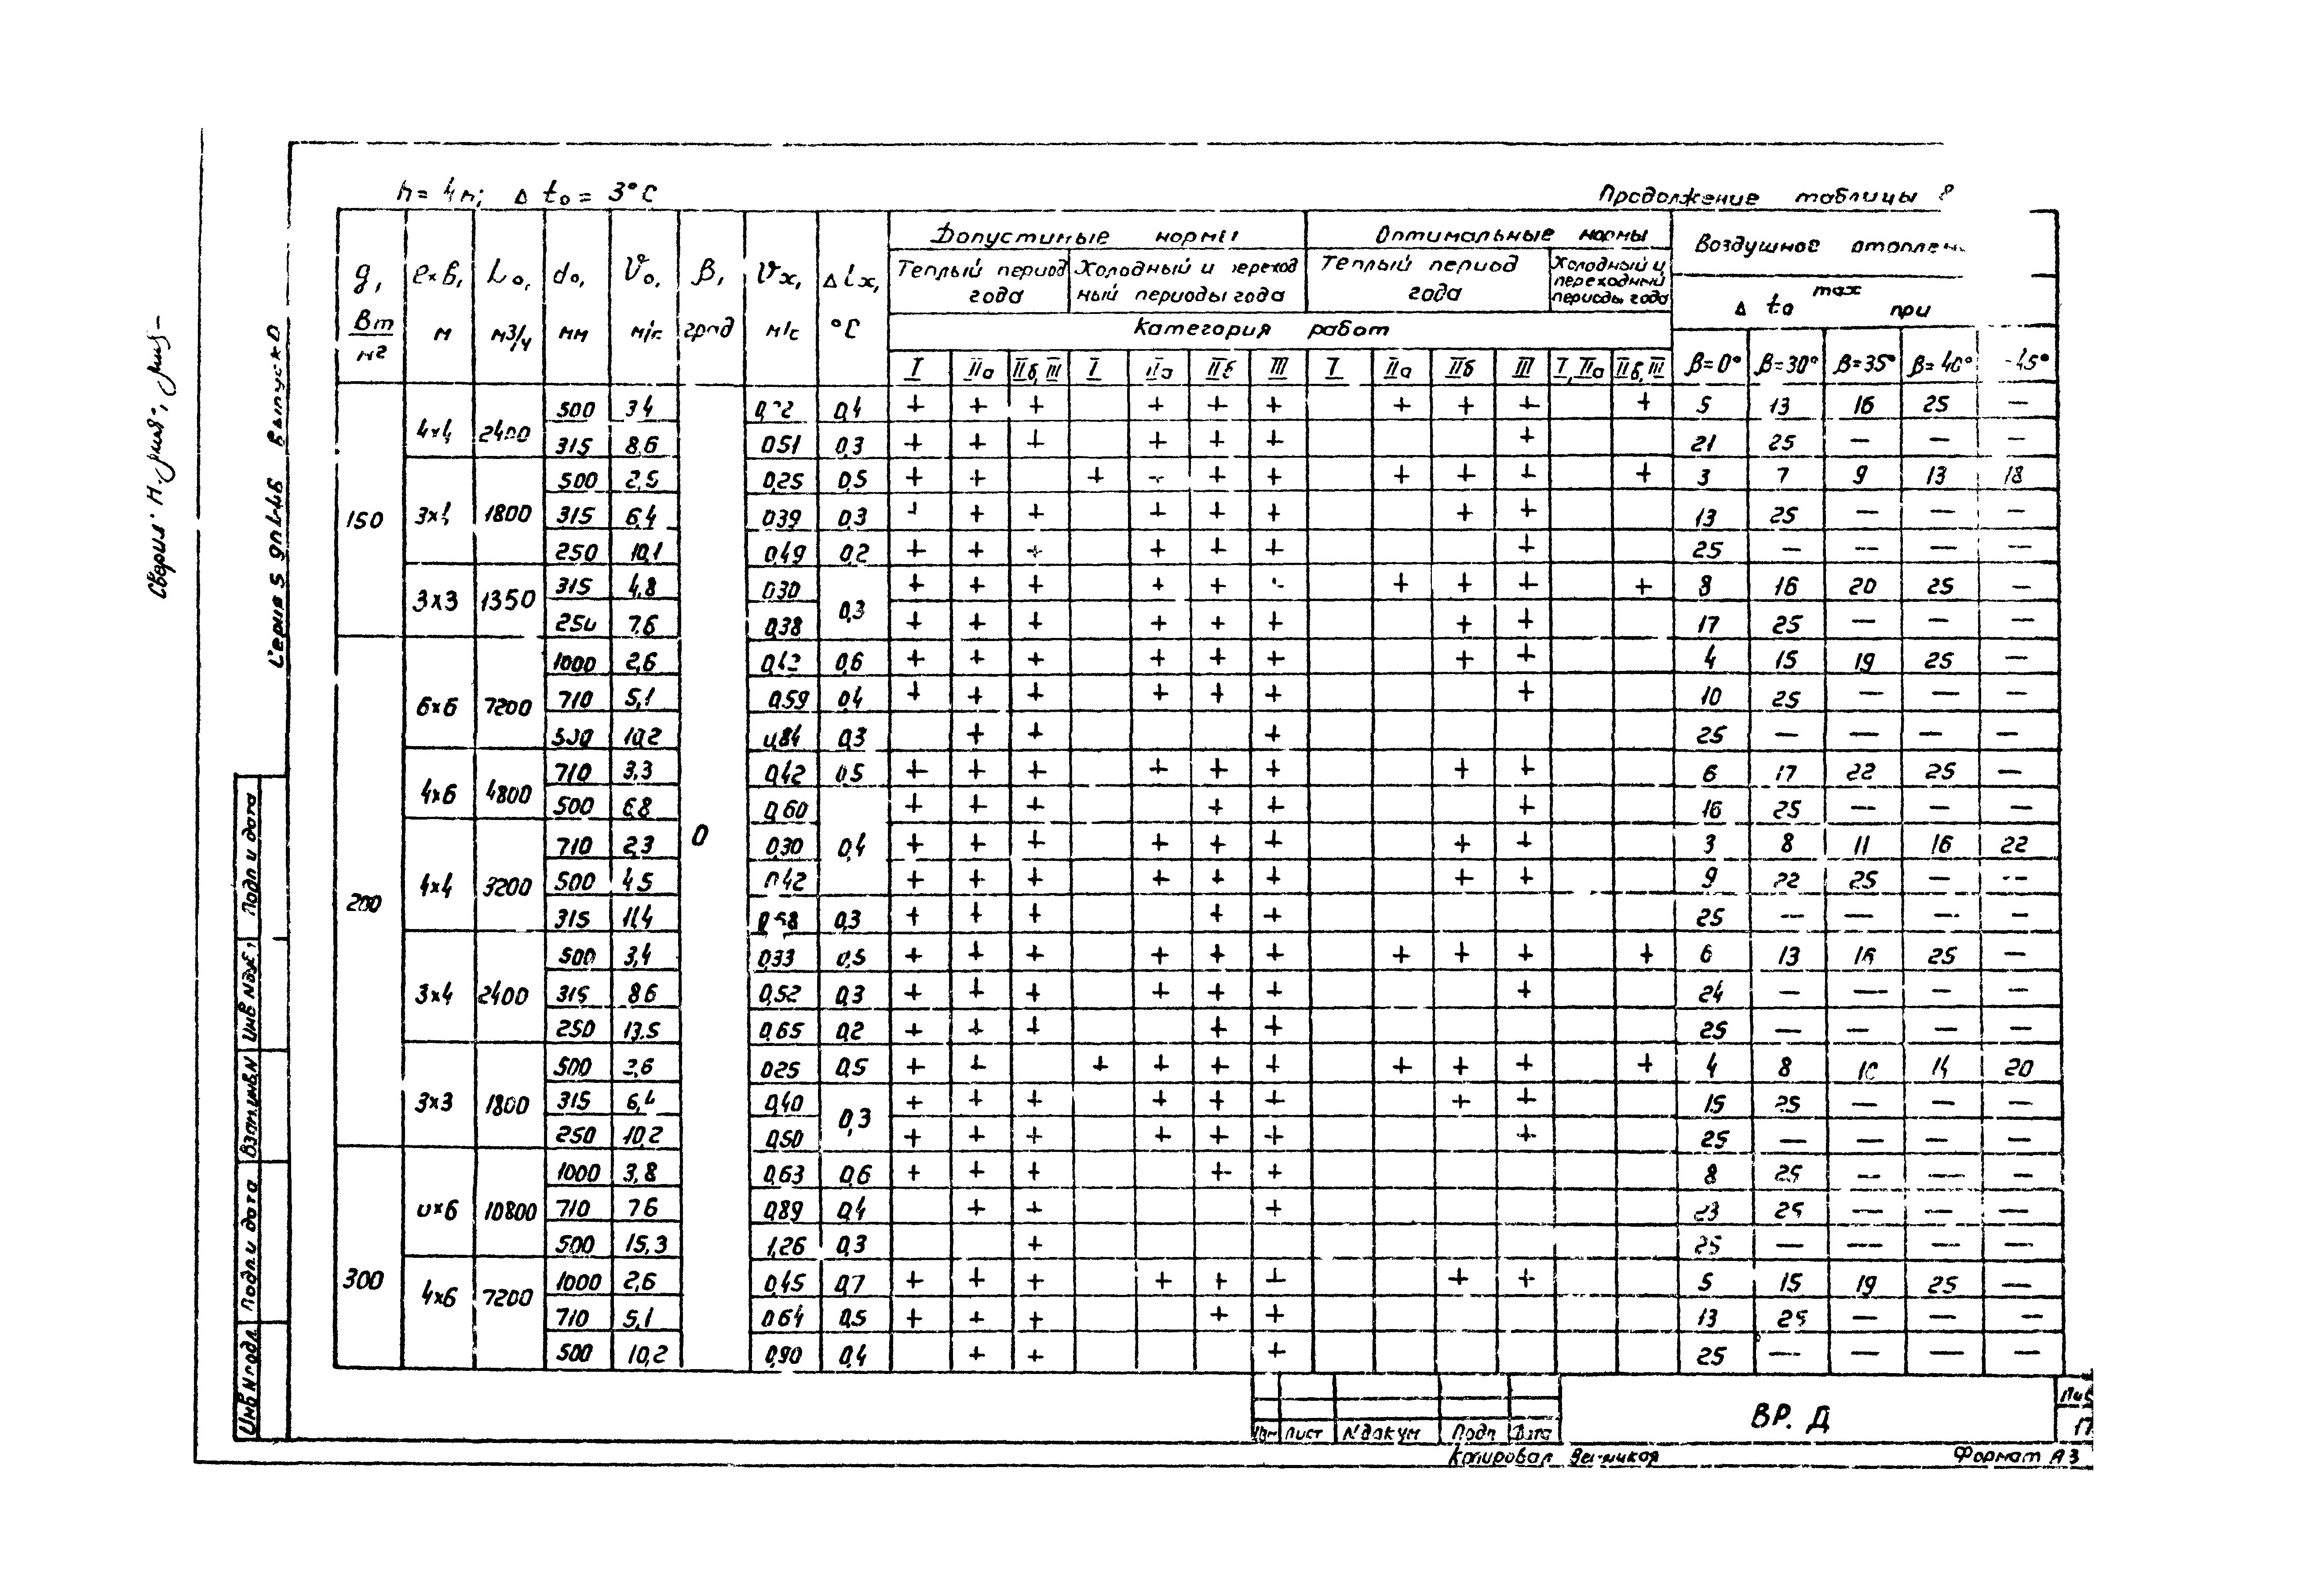 h = 4 м; Δ t₀ = 3°C
Продолжение таблицы 8
g, Вт/м² | ℓ×в, м | L₀, м3/ч | d₀, мм | V₀, м/с | β, град | Vx, м/с | Δtx, °C | Допустимые нормы | Оптимальные нормы | Воздушное
Теплый период года | Холодный и переходный периоды года | Теплый период года | Холодный и переходный периоды года | Δ t₀ max при
Категория работ
I | IIа | IIб, III | I | IIа | IIб | III | I | IIа | IIб | III | I, IIа | IIб, III | β=0° | β=30° | β=35° | β=40° | 45°
150 | 4×4 | 2400 | 500 | 3,4 | 0 | | 0,4 | + | + | + | | + | + | + | | + | + | + | | + | 5 | 13 | 16 | 25 | —
315 | 8,6 | 0,51 | 0,3 | + | + | + | | + | + | + | | | | + | | | 21 | 25 | — | — | —
3×4 | 1800 | 500 | 2,5 | 0,25 | 0,5 | + | + | | + | + | + | + | | + | + | + | | + | 3 | 7 | 9 | 13 | 18
315 | 6,4 | 0,39 | 0,3 | + | + | + | | + | + | + | | | + | + | | | 13 | 25 | — | — | —
250 | 10,1 | 0,49 | 0,2 | + | + | + | | + | + | + | | | | + | | | 25 | — | — | — | —
3×3 | 1350 | 315 | 4,8 | 0,30 | 0,3 | + | + | + | | + | + | + | | + | + | + | | + | 8 | 16 | 20 | 25 | —
250 | 7,6 | 0,38 | + | + | + | | + | + | + | | | + | + | | | 17 | 25 | — | — | —
200 | 6×6 | 7200 | 1000 | 2,6 | 0,42 | 0,6 | + | + | + | | + | + | + | | | + | + | | | 4 | 15 | 19 | 25 | —
710 | 5,1 | 0,59 | 0,4 | + | + | + | | + | + | + | | | | + | | | 10 | 25 | — | — | —
500 | 10,2 | 0,84 | 0,3 | | + | + | | | | + | | | | | | | 25 | — | — | — | —
4×6 | 4800 | 710 | 3,3 | 0,42 | 0,5 | + | + | + | | + | + | + | | | + | + | | | 6 | 17 | 22 | 25 | —
500 | 6,8 | 0,60 | 0,4 | + | + | + | | | + | + | | | | + | | | 16 | 25 | — | — | —
4×4 | 3200 | 710 | 2,3 | 0,30 | + | + | + | | + | + | + | | | + | + | | | 3 | 8 | 11 | 16 | 22
500 | 4,5 | 0,42 | + | + | + | | + | + | + | | | + | + | | | 9 | 22 | 25 | — | —
315 | 11,4 | 0,58 | 0,3 | + | + | + | | | + | + | | | | | | | 25 | — | — | — | —
3×4 | 2400 | 500 | 3,4 | 0,33 | 0,5 | + | + | + | | + | + | + | | + | + | + | | + | 6 | 13 | 16 | 25 | —
315 | 8,6 | 0,52 | 0,3 | + | + | + | | + | + | + | | | | + | | | 24 | — | — | — | —
250 | 13,5 | 0,65 | 0,2 | + | + | + | | | + | + | | | | | | | 25 | — | — | — | —
3×3 | 1800 | 500 | 2,6 | 0,25 | 0,5 | + | + | | + | + | + | + | | + | + | + | | + | 4 | 8 | 10 | 14 | 20
315 | 6,4 | 0,40 | 0,3 | + | + | + | | + | + | + | | | + | + | | | 15 | 25 | — | — | —
250 | 10,2 | 0,50 | + | + | + | | + | + | + | | | | + | | | 25 | — | — | — | —
300 | ×6 | 10800 | 1000 | 3,8 | 0,63 | 0,6 | + | + | + | | | + | + | | | | | | | 8 | 25 | — | — | —
710 | 7,6 | 0,89 | 0,4 | | + | + | | | | + | | | | | | | 23 | 25 | — | — | —
500 | 15,3 | 1,26 | 0,3 | | | + | | | | | | | | | | | 25 | — | — | — | —
4×6 | 7200 | 1000 | 2,6 | 0,45 | 0,7 | + | + | + | | + | + | + | | | + | + | | | 5 | 15 | 19 | 25 | —
710 | 5,1 | 0,64 | 0,5 | + | + | + | | | + | + | | | | | | | 13 | 25 | — | — | —
500 | 10,2 | 0,90 | 0,4 | | + | + | | | | + | | | | | | | 25 | — | — | — | —
Серия 5 Выпуск 0
Подп и дата
Инв N дубл
Взам.инв.N
Подп. и дата
Инв N подл.
Лист | N докум | Подп | Дата
ВР. Д
17
Копировал
Формат А3